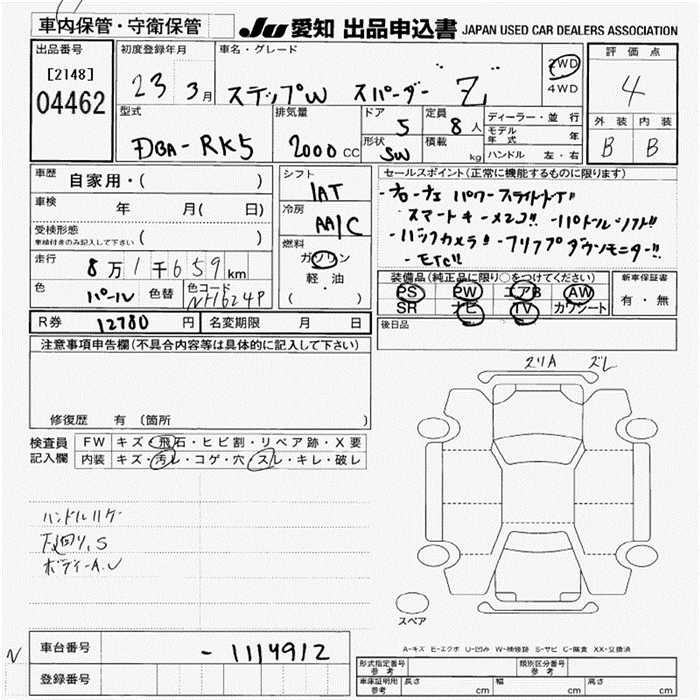 車内保管・守衛保管
JU 愛知 出品申込書 JAPAN USED CAR DEALERS ASSOCIATION
出品番号
[2148]
04462
初度登録年月
23 3月
車名・グレード
ステップW スパーダー "Z"
2WD
4WD
評価点
4
外装 内装
B B
型式
DBA-RK5
排気量
2000 CC
ドア
5
形状
SW
定員
8人
積載
kg
ディーラー・並行
モデル年式 年
ハンドル 左・右
車歴
自家用・( )
車検
年 月( 日)
受検形態
車検付きのみ記入して下さい ( )
走行
8万1千659km
色
パール
色替
色コード
NH624P
シフト
IAT
冷房
AA/C
燃料
ガソリン
軽・油
( )
セールスポイント(正常に機能するものに限ります)
・右-左 パワースライドドア
スマートキー×2コ!! ・パドルシフト!!
・バックカメラ!! ・フリップダウンモニター!!
・ETC!!
装備品(純正品に限り○をつけてください)
PS PW エアB AW
SR ナビ TV カワシート
新車保証書
有・無
後日品
R券 12780 円
名変期限 月 日
注意事項申告欄(不具合内容等は具体的に記入して下さい)
修復歴 有 (箇所 )
検査員記入欄
FW キズ・飛石・ヒビ割・リペア跡・X要
内装 キズ・汚レ・コゲ・穴・スレ・キレ・破レ
スリA ズレ
ハンドルハゲ
下廻り、S
ボディーA.U
スペア
A-キズ E-エクボ U-凹み W-補修跡 S-サビ C-腐食 XX-交換済
N
車台番号
-1114912
登録番号
形式指定番号 参考
類別区分番号 参考
車庫証明用 参考 長さ cm 幅 cm 高さ cm